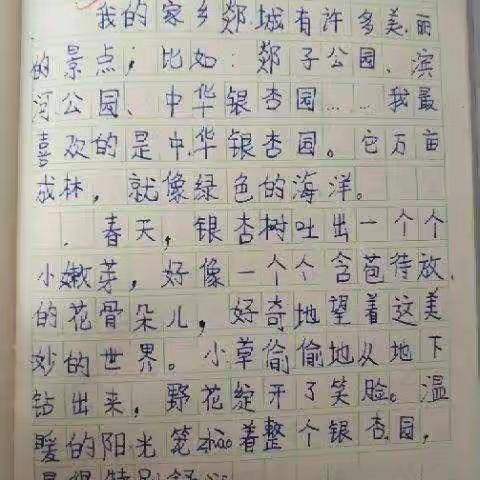 我的家乡郯城有许多美丽
的景点，比如：郯子公园、滨
河公园、中华银杏园……我最
喜欢的是中华银杏园。它万亩
成林，就像绿色的海洋。
春天，银杏树吐出一个个
小嫩芽，好像一个个含苞待放
的花骨朵儿，好奇地望着这美
妙的世界。小草偷偷地从地下
钻出来，野花绽开了笑脸。温
暖的阳光笼zhào着整个银杏园，